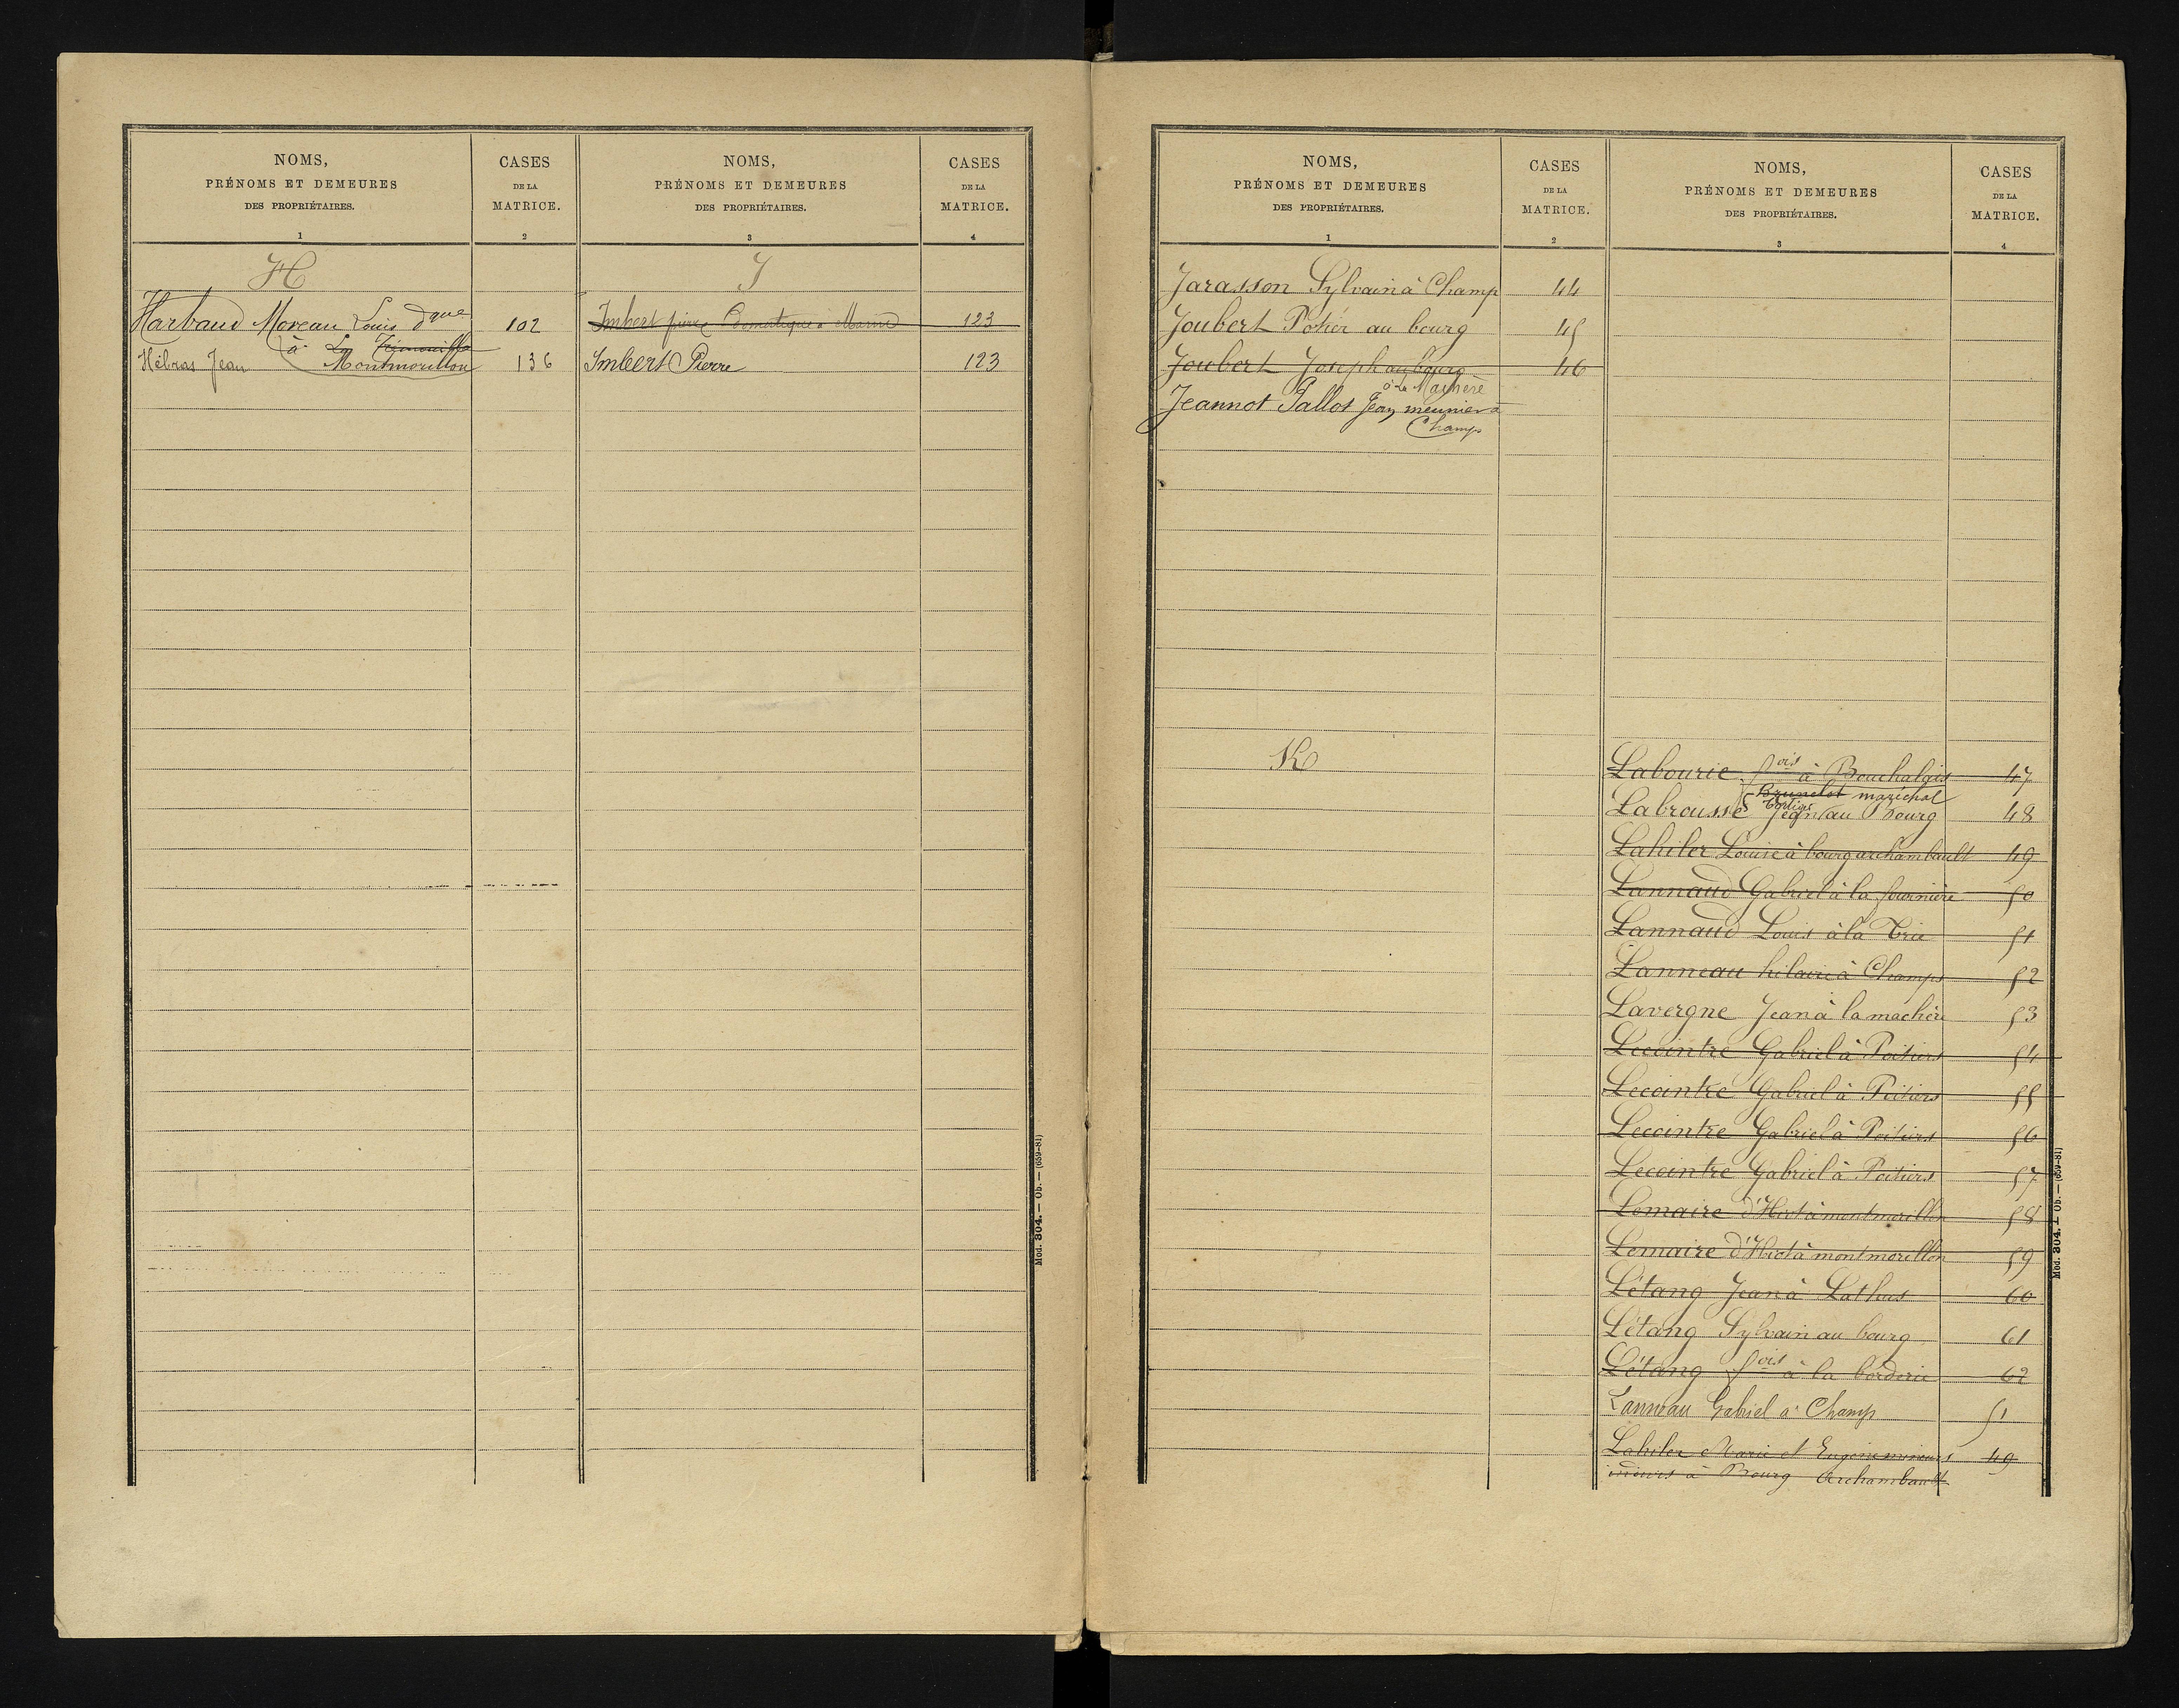 NOMS,
PRÉNOMS ET DEMEURES
DES PROPRIÉTAIRES.
1
CASES
DE LA
MATRICE.
2
NOMS,
PRÉNOMS ET DEMEURES
DES PROPRIÉTAIRES.
3
CASES
DE LA
MATRICE.
4
H
Harbaud Moreau Louis dque 102
à La Trimouille
Hébras Jean Montmorillon 136
I
Imbert pierre Domestique à Marine 123
Imbert Pierre 123
Mod. 304. — Ob. — (659-81)
NOMS,
PRÉNOMS ET DEMEURES
DES PROPRIÉTAIRES.
1
CASES
DE LA
MATRICE.
2
NOMS,
PRÉNOMS ET DEMEURES
DES PROPRIÉTAIRES.
3
CASES
DE LA
MATRICE.
4
Jarasson Sylvain à Champ 44
Joubert Potier au bourg 45
Joubert Joseph au bourg 46
à la Machère
Jeannot Pallot Jean meunier à
Champs
K
Labourie fois à Bouchalais 47
Brunelot maréchal
Labrousse Jean au Bourg 48
Lahiler Louise à bourg archambault 49
Lannaud Gabriel à la fournière 50
Lannaud Louis à la Trie 51
Lanneau hilaire à Champs 52
Lavergne Jean à la machère 53
Lecointre Gabriel à Poitiers 54
Lecointre Gabriel à Poitiers 55
Lecointre Gabriel à Poitiers 56
Lecointre Gabriel à Poitiers 57
Lemaire d'Hiot à montmorillon 58
Lemaire d'Hiot à montmorillon 59
Létang Jean à Lathus 60
Létang Sylvain au bourg 61
Létang fois à la borderie 62
Lanneau Gabriel à Champ 51
Lahiler Marie et Eugénie mineurs 49
à Bourg Archambault
Mod. 304. — Ob. — (659-81)